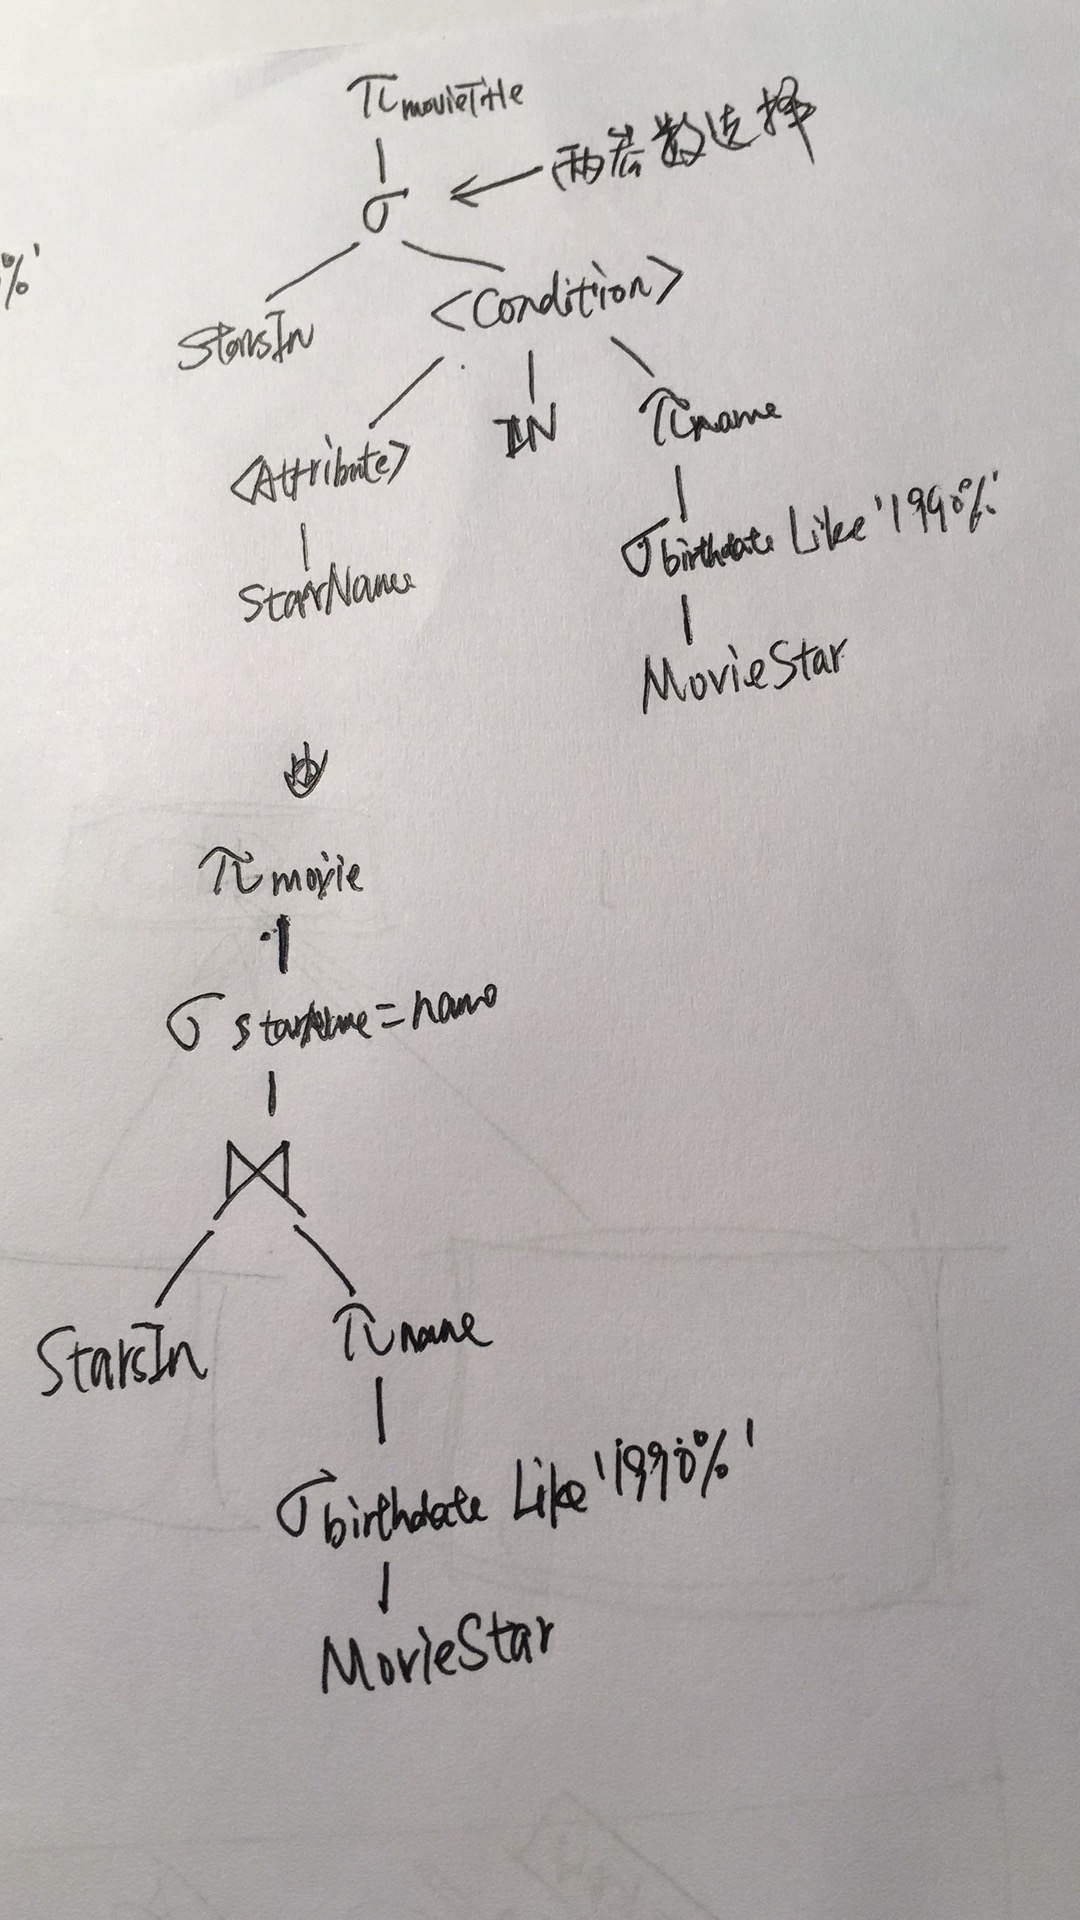 π movieTitle
σ ← 两参数选择
%'
StarsIn <Condition>
<Attribute> IN π name
StarName σ birthdate Like '1990%'
MovieStar
π movie
σ starName = name
⋈
StarsIn π name
σ birthdate Like '1990%'
MovieStar